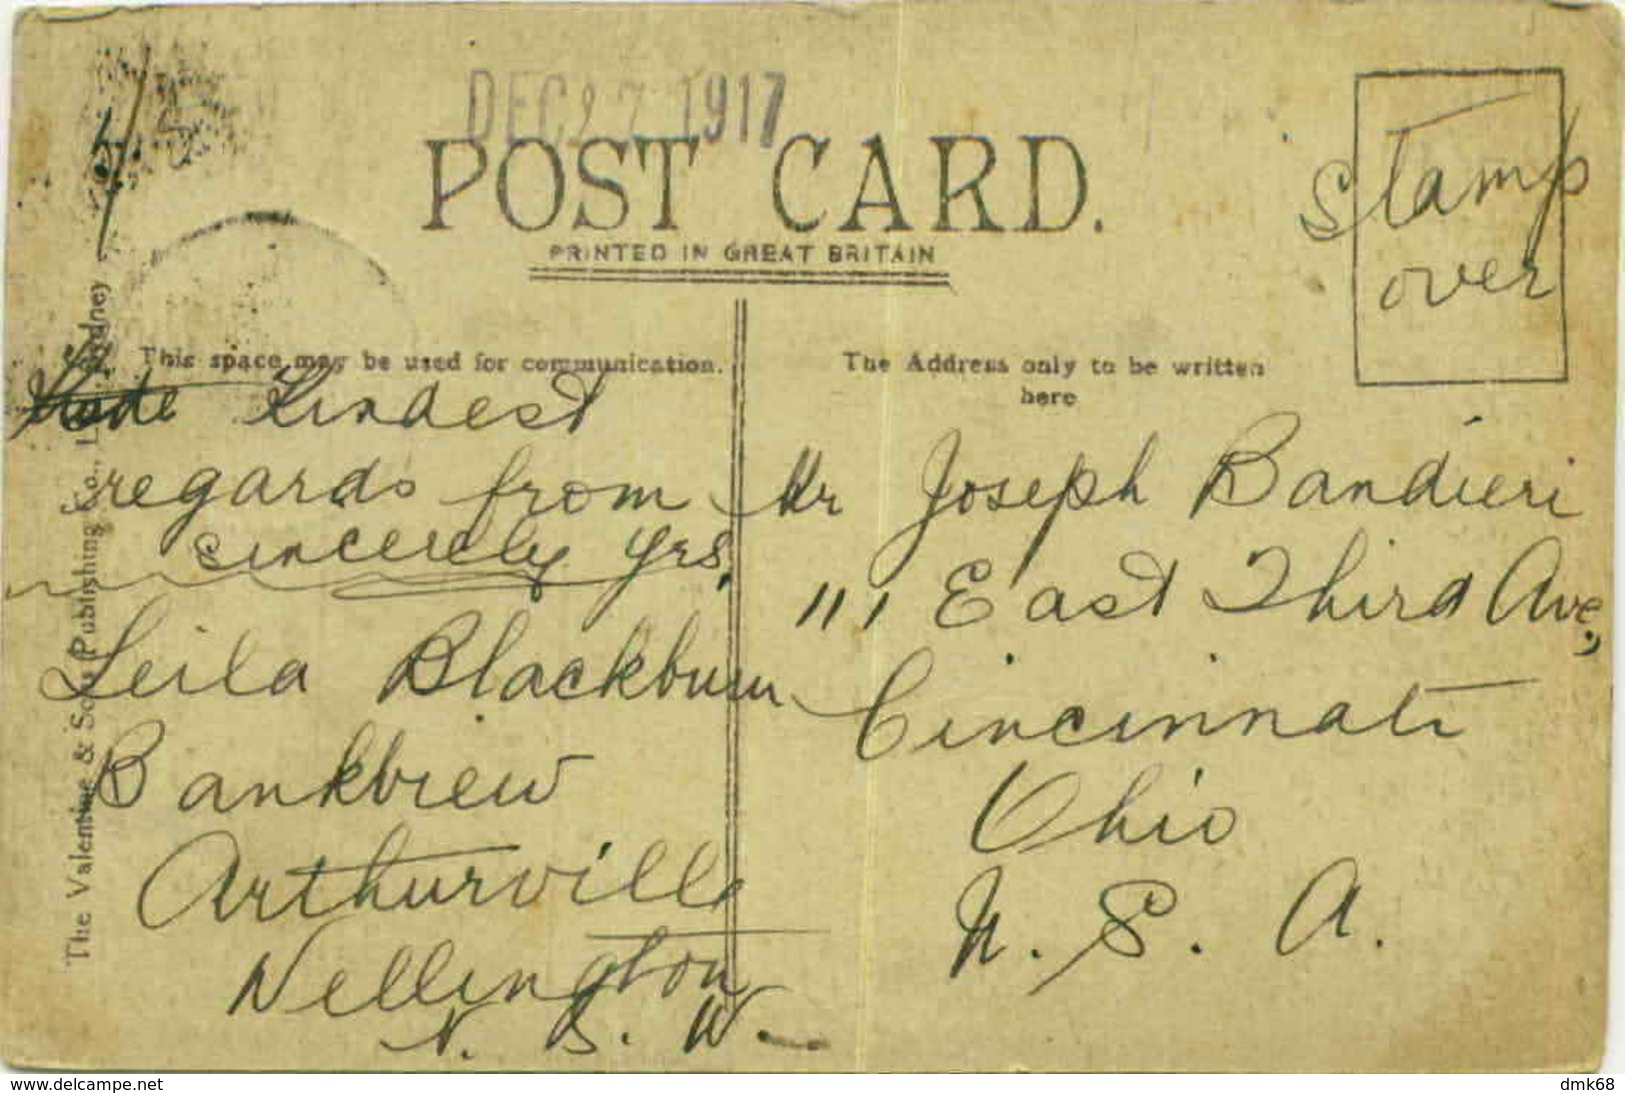 DEC 27 1917
POST CARD.
PRINTED IN GREAT BRITAIN
Stamp
over
This space may be used for communication.
The Address only to be written
here
Kindest
regards from
sincerely yrs,
Leila Blackburn
Bankview
Arthurville
Wellington
N. S. W.
Mr Joseph Bandieri
111 East Third Ave,
Cincinnati
Ohio
U. S. A.
The Valentine & Sons Publishing Co., Ltd. Sydney
www.delcampe.net
dmk68